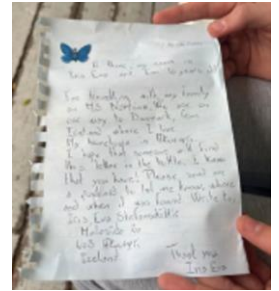 Hi there, my name is
Iris Eva and I'm 10 years old
I'm travelling with my family
on MS Norröna. We are on
our way to Denmark, from
Iceland where I live.
My hometown is Akureyri.
I hope that someone will find
this letter in the bottle. I know
that you have! Please send me
a postcard to let me know, where
and when it was found. Write to:
Iris Eva
603 Akureyri
Iceland
Thank you
Iris Eva